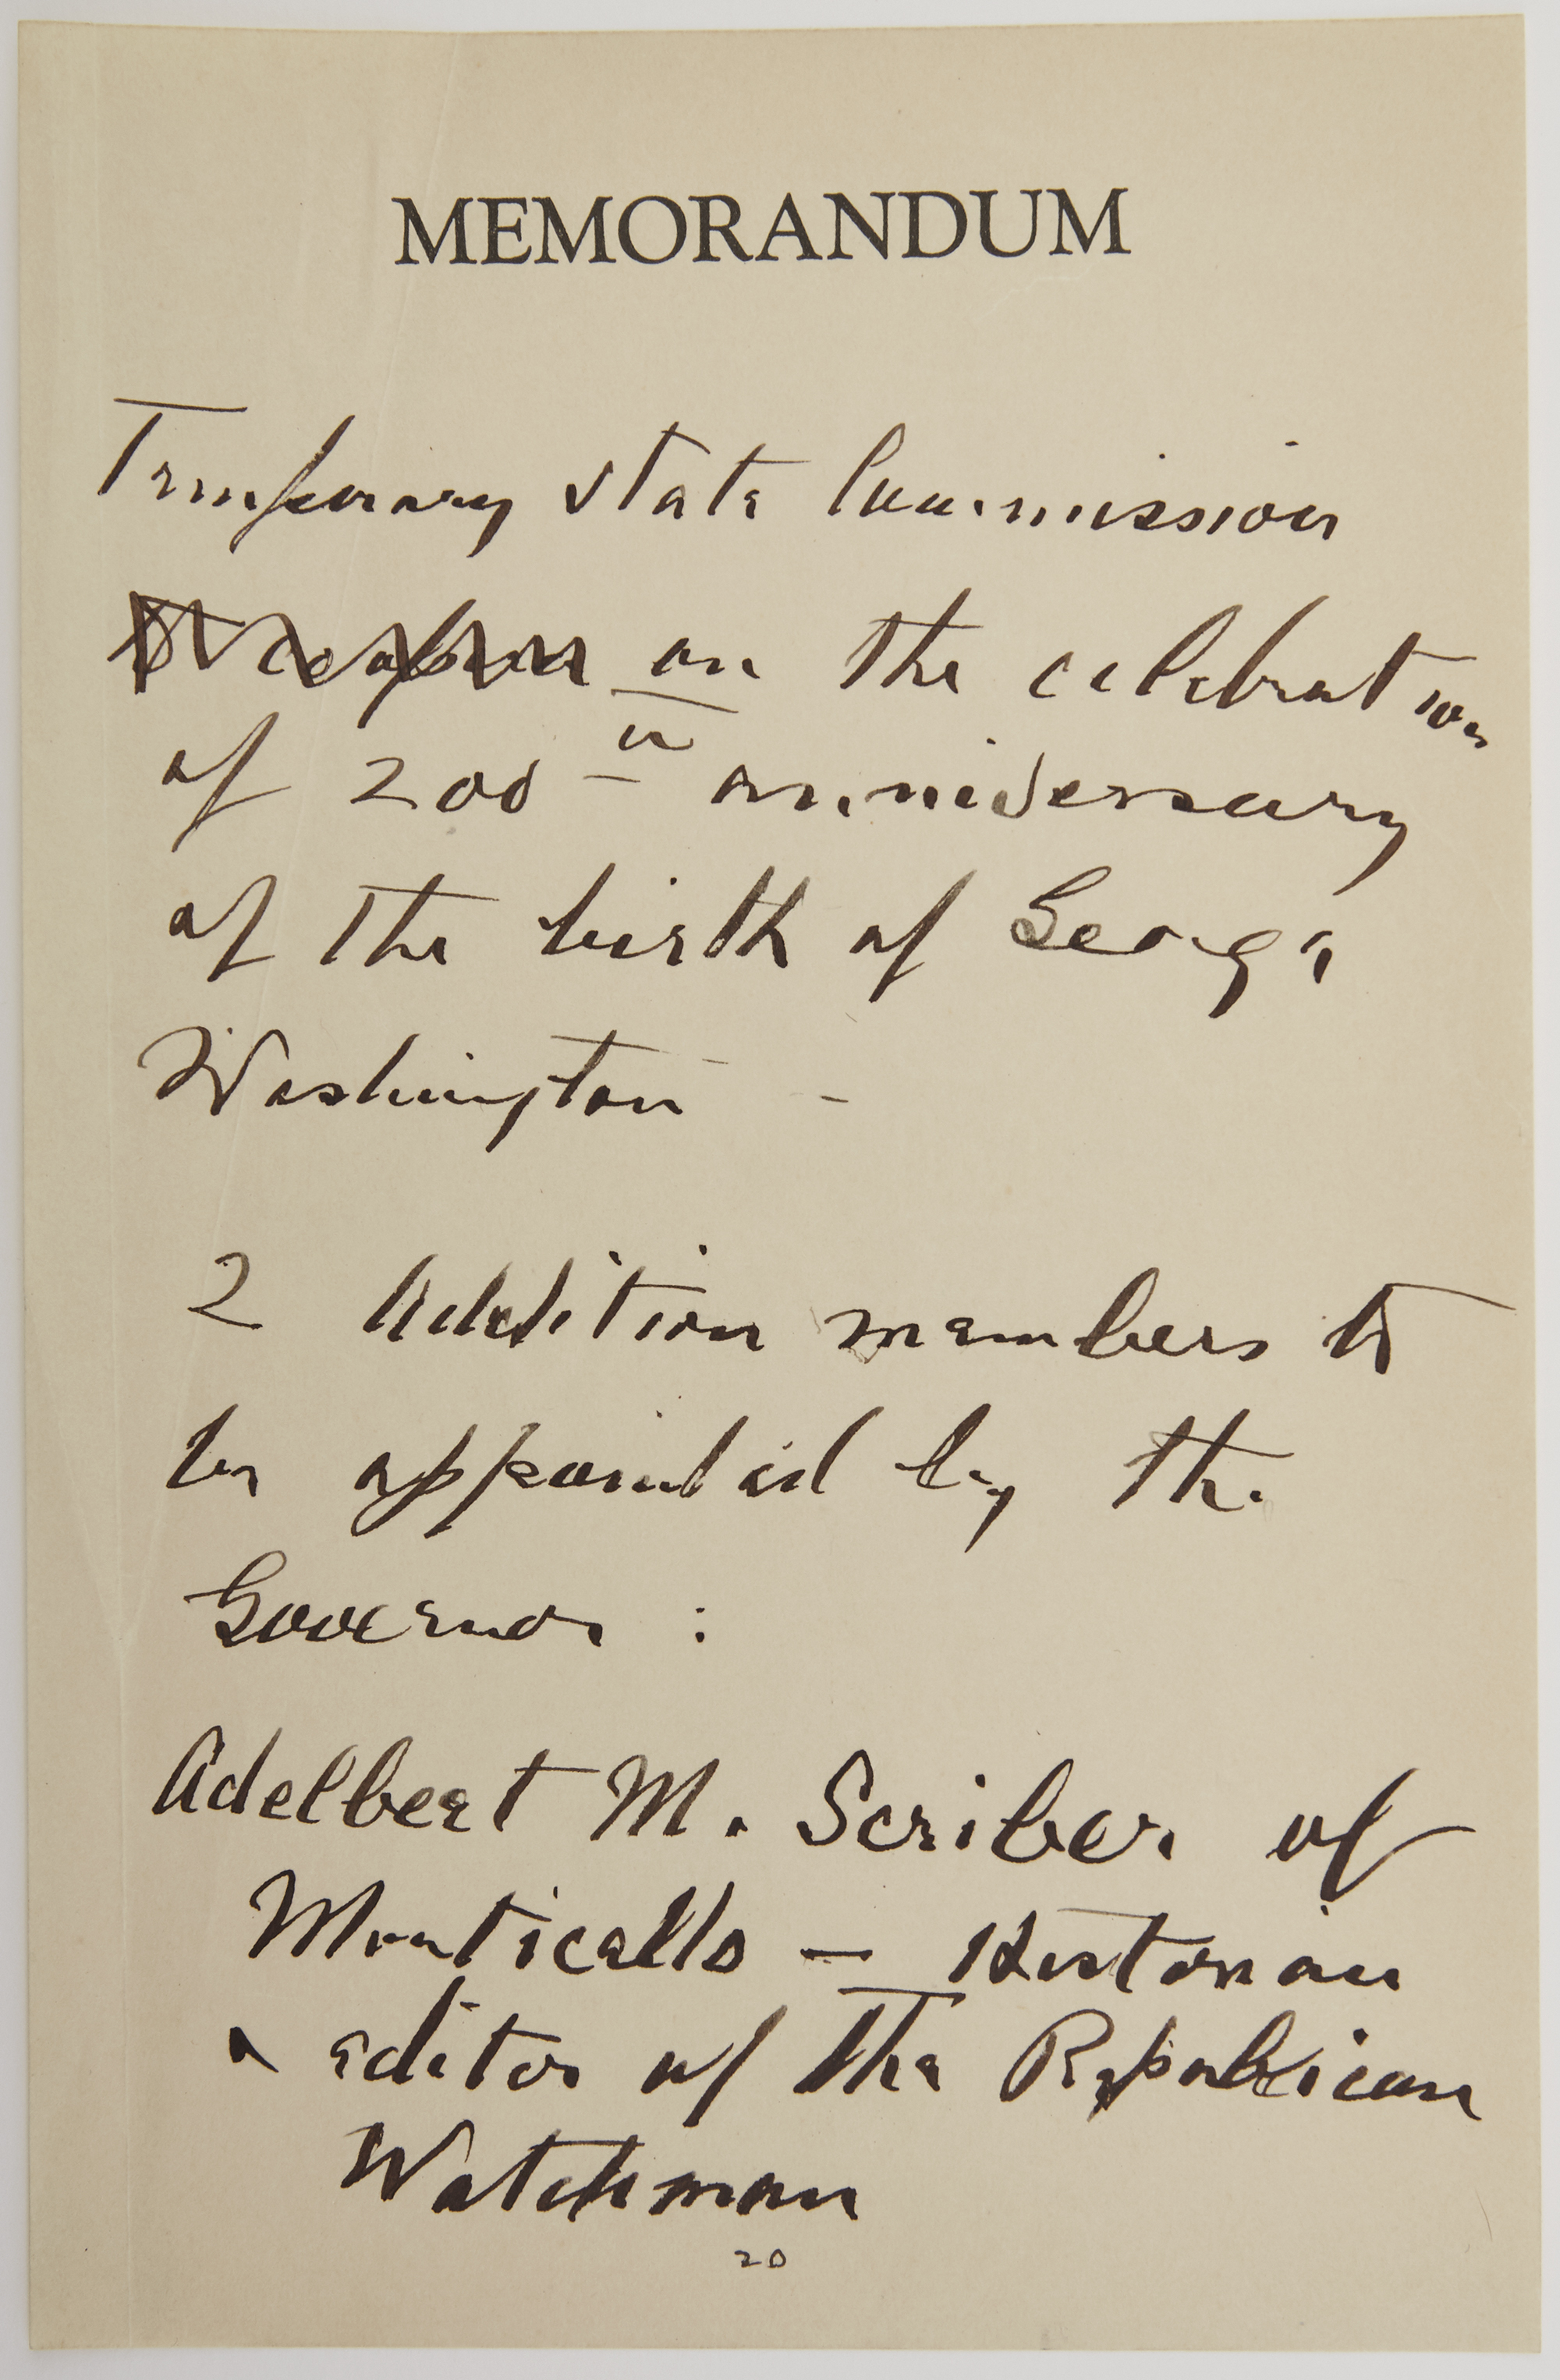 MEMORANDUM
Temporary State Commission
on the celebration
of 200th anniversary
of the birth of George
Washington -
2 Addition members to
be appointed by the
Governor :
Adelbert M. Scriber of
Monticello - Historian
& editor of the Republican
Watchman
20